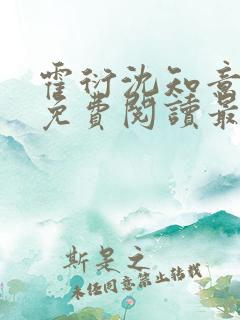 霍衍沈知意
免費閱讀最
斯是之
未经同意禁止转载